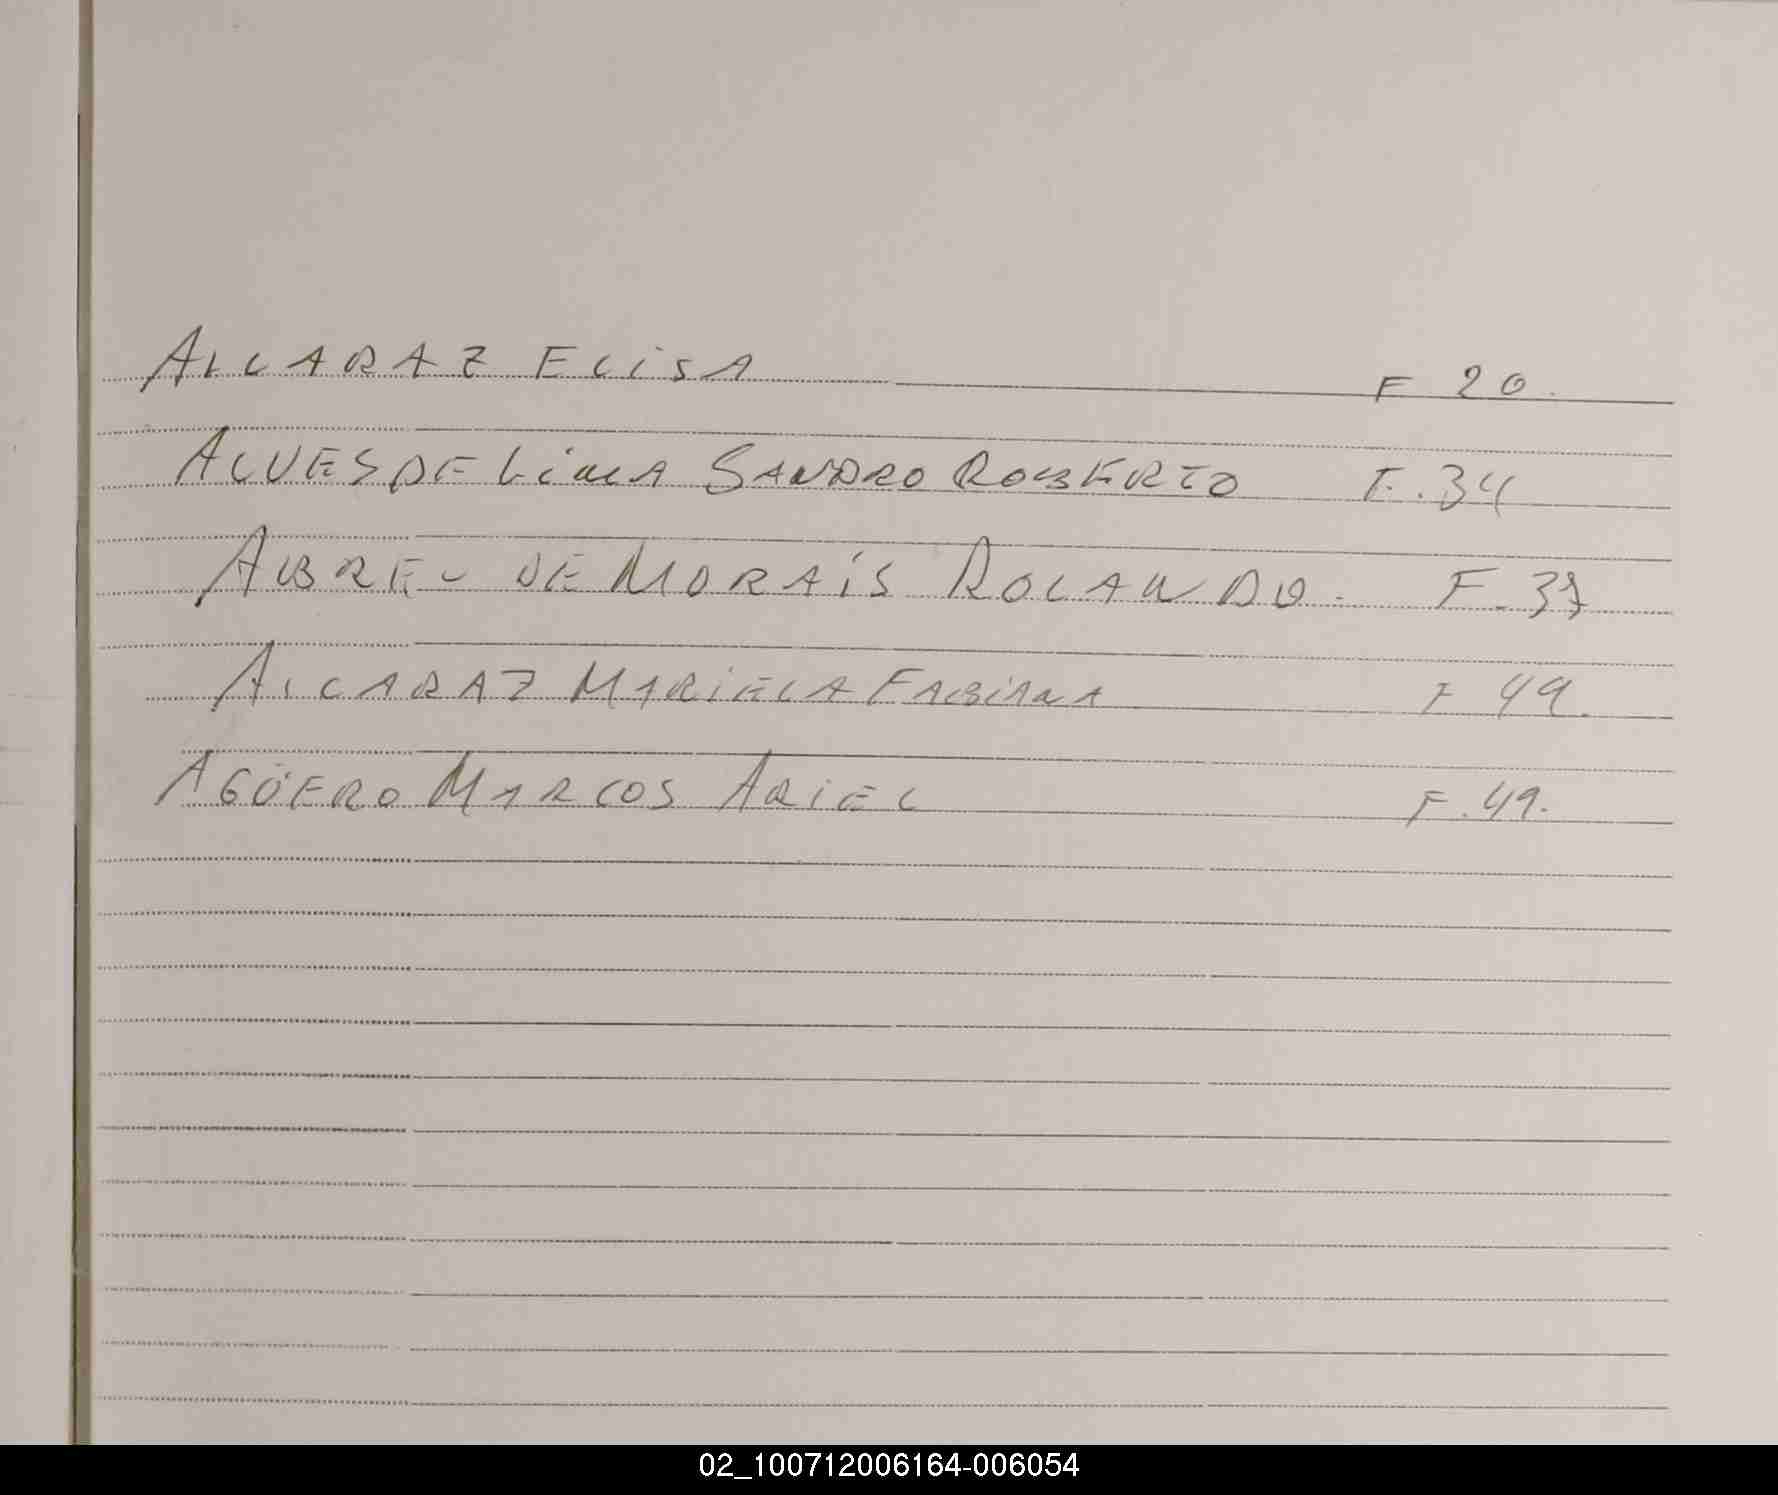 ALCARAZ ELISA F 20.
ALVES DE LIMA SANDRO ROBERTO F.34
ABREU DE MORAIS ROLANDO. F.37
ALCARAZ MARIELA FABIANA F 49.
AGÜERO MARCOS ARIEL F.49.
02_100712006164-006054